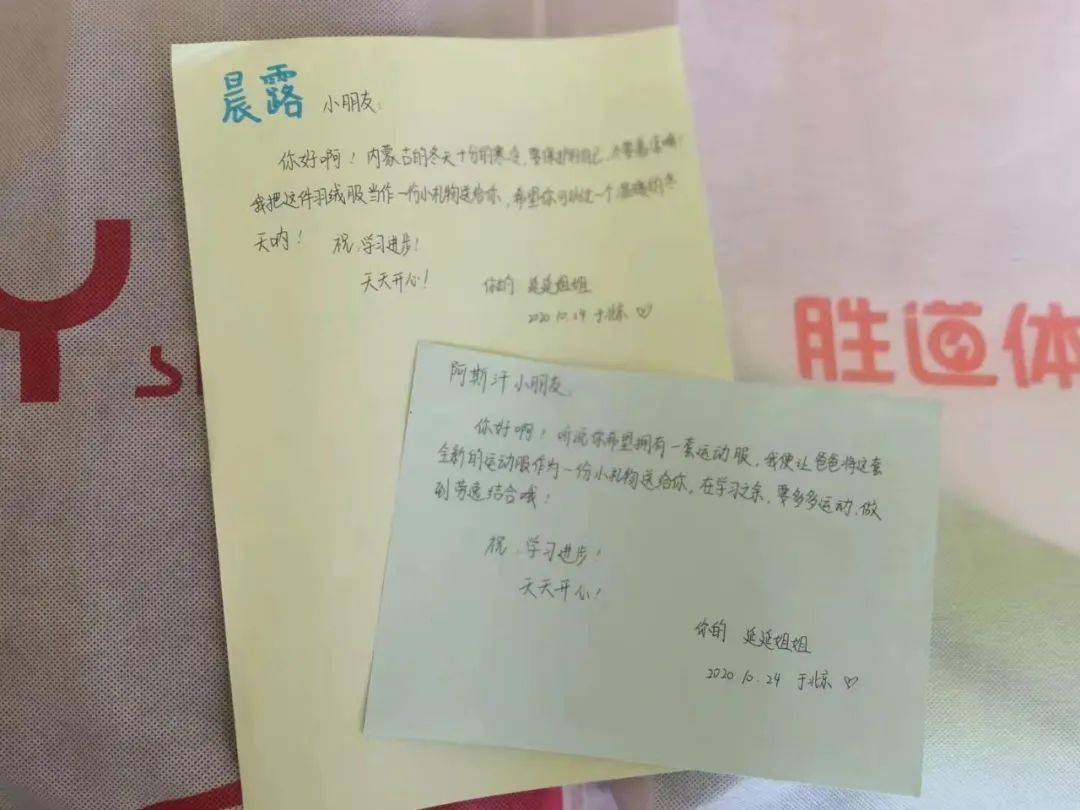 晨露 小朋友：
你好啊！内蒙古的冬天十分的寒冷，要保护好自己，不要着凉哦！
我把这件羽绒服当作一份小礼物送给你，希望你可以过一个温暖的冬
天呐！ 祝：学习进步！
天天开心！
你的 延延姐姐
2020.10.24 于北京♡
阿斯汗小朋友：
你好啊！听说你希望拥有一套运动服，我便让爸爸将这套
全新的运动服作为一份小礼物送给你。在学习之余，要多多运动，做
到劳逸结合哦！
祝：学习进步！
天天开心！
你的 延延姐姐
2020.10.24 于北京♡
Y
胜道体